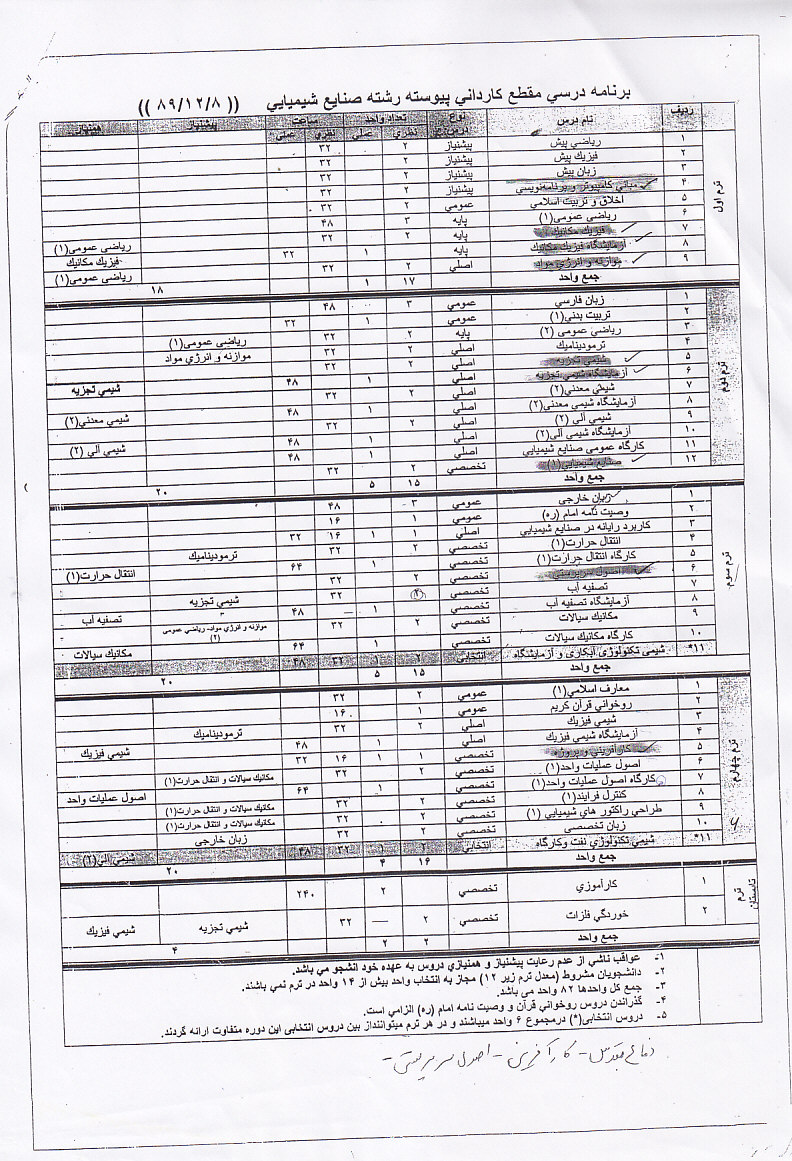 برنامه درسي مقطع كارداني پيوسته رشته صنايع شيميايي (( ۸۹/۱۲/۸ ))
رديف نام درس نوع درس تعداد واحد ساعت پيشنياز همنياز
نظري عملي نظري عملي
ترم اول
۱ رياضي پيش پيشنياز ۲ ۳۲
۲ فيزيك پيش پيشنياز ۲ ۳۲
۳ زبان پيش پيشنياز ۲ ۳۲
۴ مباني كامپيوتر و برنامه‌نويسي پيشنياز ۲ ۳۲
۵ اخلاق و تربيت اسلامي عمومي ۲ ۳۲
۶ رياضي عمومي(۱) پايه ۳ ۴۸
۷ فيزيك مكانيك پايه ۲ ۳۲ رياضي عمومي(۱)
۸ آزمايشگاه فيزيك مكانيك پايه ۱ ۳۲ فيزيك مكانيك
۹ موازنه و انرژي مواد اصلي ۲ ۳۲ رياضي عمومي(۱)
جمع واحد ۱۷ ۱ ۱۸
ترم دوم
۱ زبان فارسي عمومي ۳ ۴۸
۲ تربيت بدني(۱) عمومي ۱ ۳۲
۳ رياضي عمومي (۲) پايه ۲ ۳۲ رياضي عمومي(۱)
۴ ترموديناميك اصلي ۲ ۳۲ موازنه و انرژي مواد
۵ شيمي تجزيه اصلي ۲ ۳۲
۶ آزمايشگاه شيمي تجزيه اصلي ۱ ۴۸ شيمي تجزيه
۷ شيمي معدني(۲) اصلي ۲ ۳۲
۸ آزمايشگاه شيمي معدني(۲) اصلي ۱ ۴۸ شيمي معدني(۲)
۹ شيمي آلي (۲) اصلي ۲ ۳۲
۱۰ آزمايشگاه شيمي آلي(۲) اصلي ۱ ۴۸ شيمي آلي (۲)
۱۱ كارگاه عمومي صنايع شيميايي اصلي ۱ ۴۸
۱۲ صنايع شيميايي(۱) تخصصي ۲ ۳۲
جمع واحد ۱۵ ۵ ۲۰
ترم سوم
۱ زبان خارجي عمومي ۳ ۴۸
۲ وصيت نامه امام (ره) عمومي ۱ ۱۶
۳ كاربرد رايانه در صنايع شيميايي اصلي ۱ ۱ ۱۶ ۳۲
۴ انتقال حرارت(۱) تخصصي ۲ ۳۲ ترموديناميك
۵ كارگاه انتقال حرارت(۱) تخصصي ۱ ۶۴ انتقال حرارت(۱)
۶ اصول سرپرستي تخصصي ۲ ۳۲
۷ تصفيه آب تخصصي ۲ ۳۲ شيمي تجزيه
۸ آزمايشگاه تصفيه آب تخصصي ۱ — ۴۸ تصفيه آب
۹ مكانيك سيالات تخصصي ۲ ۳۲ موازنه و انرژي مواد- رياضي عمومي (۲)
۱۰ كارگاه مكانيك سيالات تخصصي ۱ ۶۴ مكانيك سيالات
۱۱* شيمي تكنولوژي آبكاري و آزمايشگاه انتخابي ۲ ۱ ۳۲ ۴۸
جمع واحد ۱۵ ۵ ۲۰
ترم چهارم
۱ معارف اسلامي(۱) عمومي ۲ ۳۲
۲ روخواني قرآن كريم عمومي ۱ ۱۶
۳ شيمي فيزيك اصلي ۲ ۳۲ ترموديناميك
۴ آزمايشگاه شيمي فيزيك اصلي ۱ ۴۸ شيمي فيزيك
۵ كارآفريني و پروژه تخصصي ۱ ۱ ۱۶ ۳۲
۶ اصول عمليات واحد(۱) تخصصي ۲ ۳۲ مكانيك سيالات و انتقال حرارت(۱)
۷ كارگاه اصول عمليات واحد(۱) تخصصي ۱ ۶۴ اصول عمليات واحد
۸ كنترل فرايند(۱) تخصصي ۲ ۳۲ مكانيك سيالات و انتقال حرارت(۱)
۹ طراحي راكتور هاي شيميايي (۱) تخصصي ۲ ۳۲ مكانيك سيالات و انتقال حرارت(۱)
۱۰ زبان تخصصي تخصصي ۲ ۳۲ زبان خارجي
۱۱* شيمي تكنولوژي نفت وكارگاه انتخابي ۲ ۱ ۳۲ ۴۸ شيمي آلي(۲)
جمع واحد ۱۶ ۴ ۲۰
ترم تابستان
۱ كارآموزي تخصصي ۲ ۲۴۰
۲ خوردگي فلزات تخصصي ۲ — ۳۲ شيمي تجزيه شيمي فيزيك
جمع واحد ۲ ۲ ۴
۱- عواقب ناشي از عدم رعايت پيشنياز و همنيازي دروس به عهده خود انشجو مي باشد.
۲- دانشجويان مشروط (معدل ترم زير ۱۲) مجاز به انتخاب واحد بيش از ۱۴ واحد در ترم نمي باشند.
۳- جمع كل واحدها ۸۲ واحد مي باشد.
۴- گذراندن دروس روخواني قرآن و وصيت نامه امام (ره) الزامي است.
۵- دروس انتخابي(*) درمجموع ۶ واحد ميباشند و در هر ترم ميتوانند از بين دروس انتخابي اين دوره متفاوت ارائه گردند.
دفاع مقدس - كارآفريني - اصول سرپرستي -